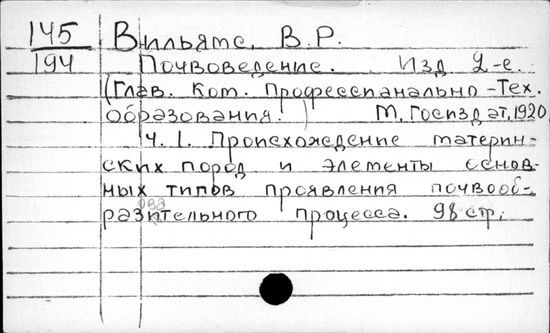 145
194
Вильямс, В.Р.
Почвоведение. Изд 2-е.
(Глав. Ком. Профессианально-Тех.
образования.) М, Госиздат, 1920
Ч. 1. Происхождение материн-
ских пород и элементы основ-
ных типов проявления почвооб-
разовательного процесса. 98 стр.